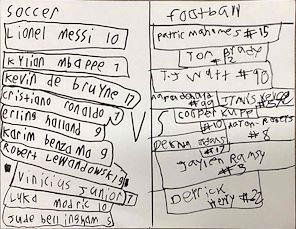 soccer
Lionel messi 10
Kylian mbappe 7
kevin de bruyne 17
cristiano ronaldo 7
erling halland 9
karim benzama 9
Robert Lewandowski 9
Vinicius junior 7
Luka modric 10
Jude bellingham 5
V
S
football
patric mahomes #15
Tom Brady
#12
T.J Watt #90
#99
Travis kelce
cooper kupp
#10
#8
#3
Derrick
Henry #22